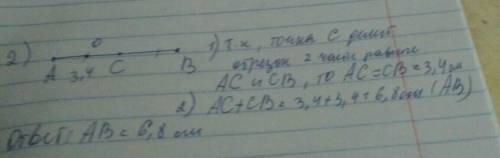 2)
1) Т.к, точка C делит
O
отрезок 2 части равные
A 3,4 C B
AC и CB, то AC=CB=3,4см
2) AC+CB=3,4+3,4=6,8см (AB)
Ответ: AB=6,8см